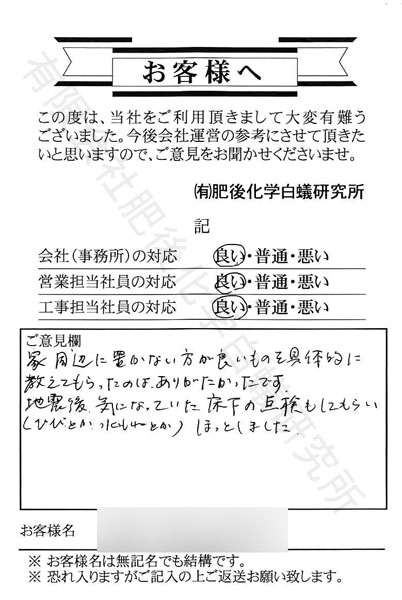 お客様へ
この度は、当社をご利用頂きまして大変有難う
ございました。今後会社運営の参考にさせて頂きた
いと思いますので、ご意見をお聞かせくださいませ。
㈲肥後化学白蟻研究所
記
会社(事務所)の対応 良い・普通・悪い
営業担当社員の対応 良い・普通・悪い
工事担当社員の対応 良い・普通・悪い
ご意見欄
家周辺に置かない方が良いものを具体的に
教えてもらったのは、ありがたかったです。
地震後、気になっていた床下の点検もしてもらい
(ひびとか水もれとか)ほっとしました
お客様名
※ お客様名は無記名でも結構です。
※ 恐れ入りますがご記入の上ご返送お願い致します。
有限会社肥後化学白蟻研究所